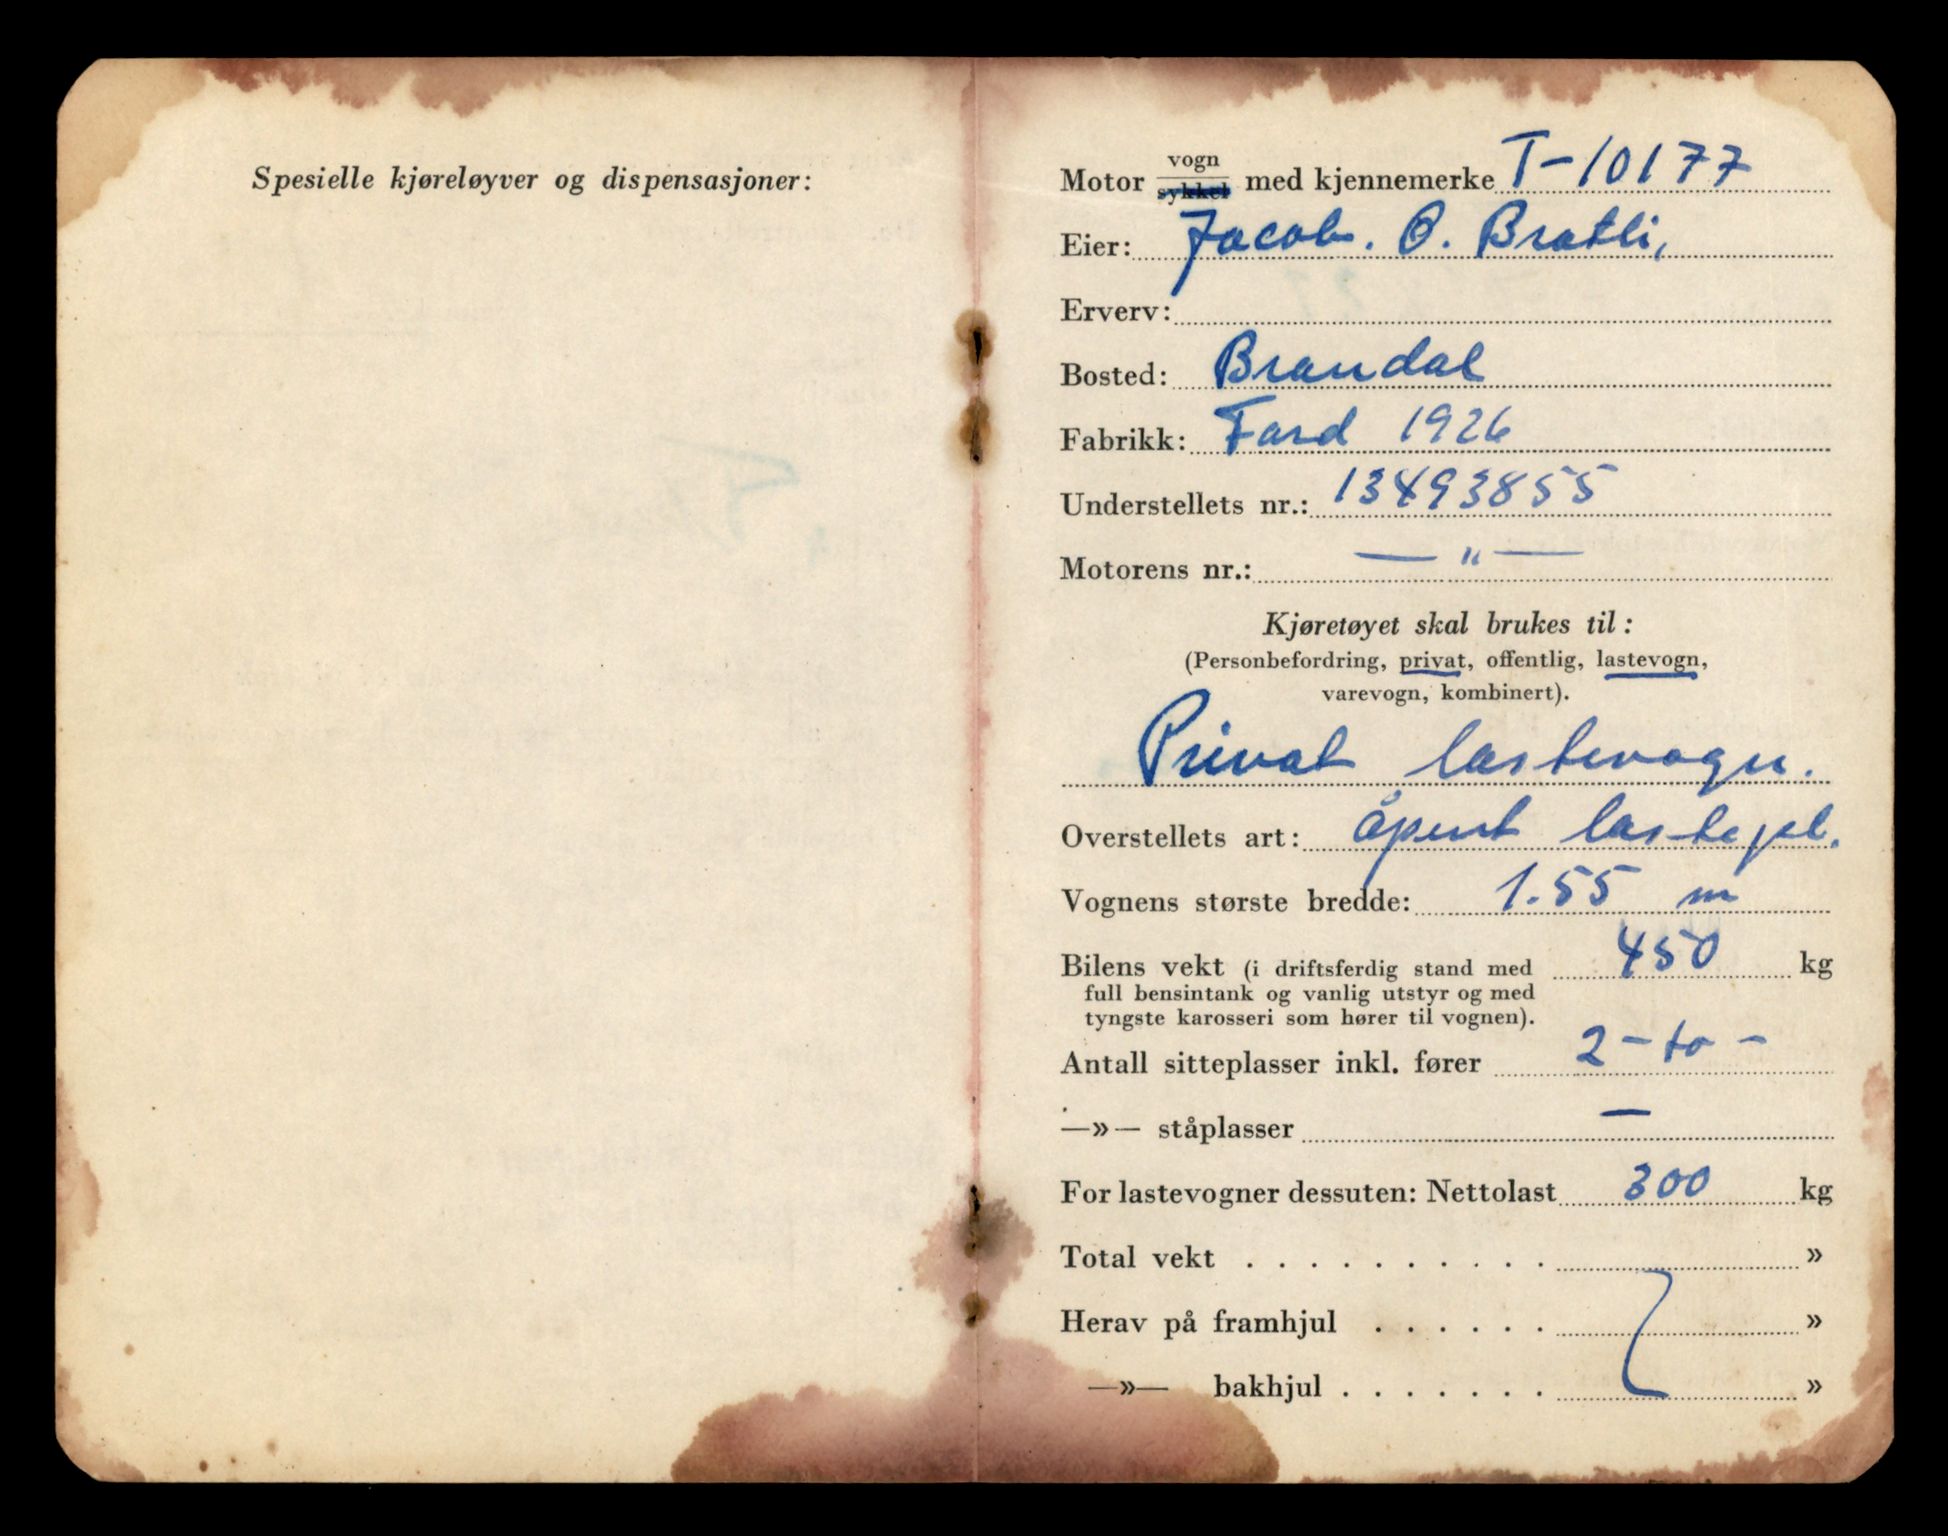 Spesielle kjøreløyver og dispensasjoner:
Motor vogn sykkel med kjennemerke T-10177
Eier: Jacob. O. Bratli,
Erverv:
Bosted: Brandal
Fabrikk: Ford 1926
Understellets nr.: 13493855
Motorens nr.: — " —
Kjøretøyet skal brukes til:
(Personbefordring, privat, offentlig, lastevogn,
varevogn, kombinert).
Privat lastevogn.
Overstellets art: åpent lastepl.
Vognens største bredde: 1.55 m
Bilens vekt (i driftsferdig stand med 450 kg
full bensintank og vanlig utstyr og med
tyngste karosseri som hører til vognen).
Antall sitteplasser inkl. fører 2 - to -
—»— ståplasser —
For lastevogner dessuten: Nettolast 300 kg
Total vekt . . . . . . . . . . »
Herav på framhjul . . . . . . »
—»— bakhjul . . . . . . . »